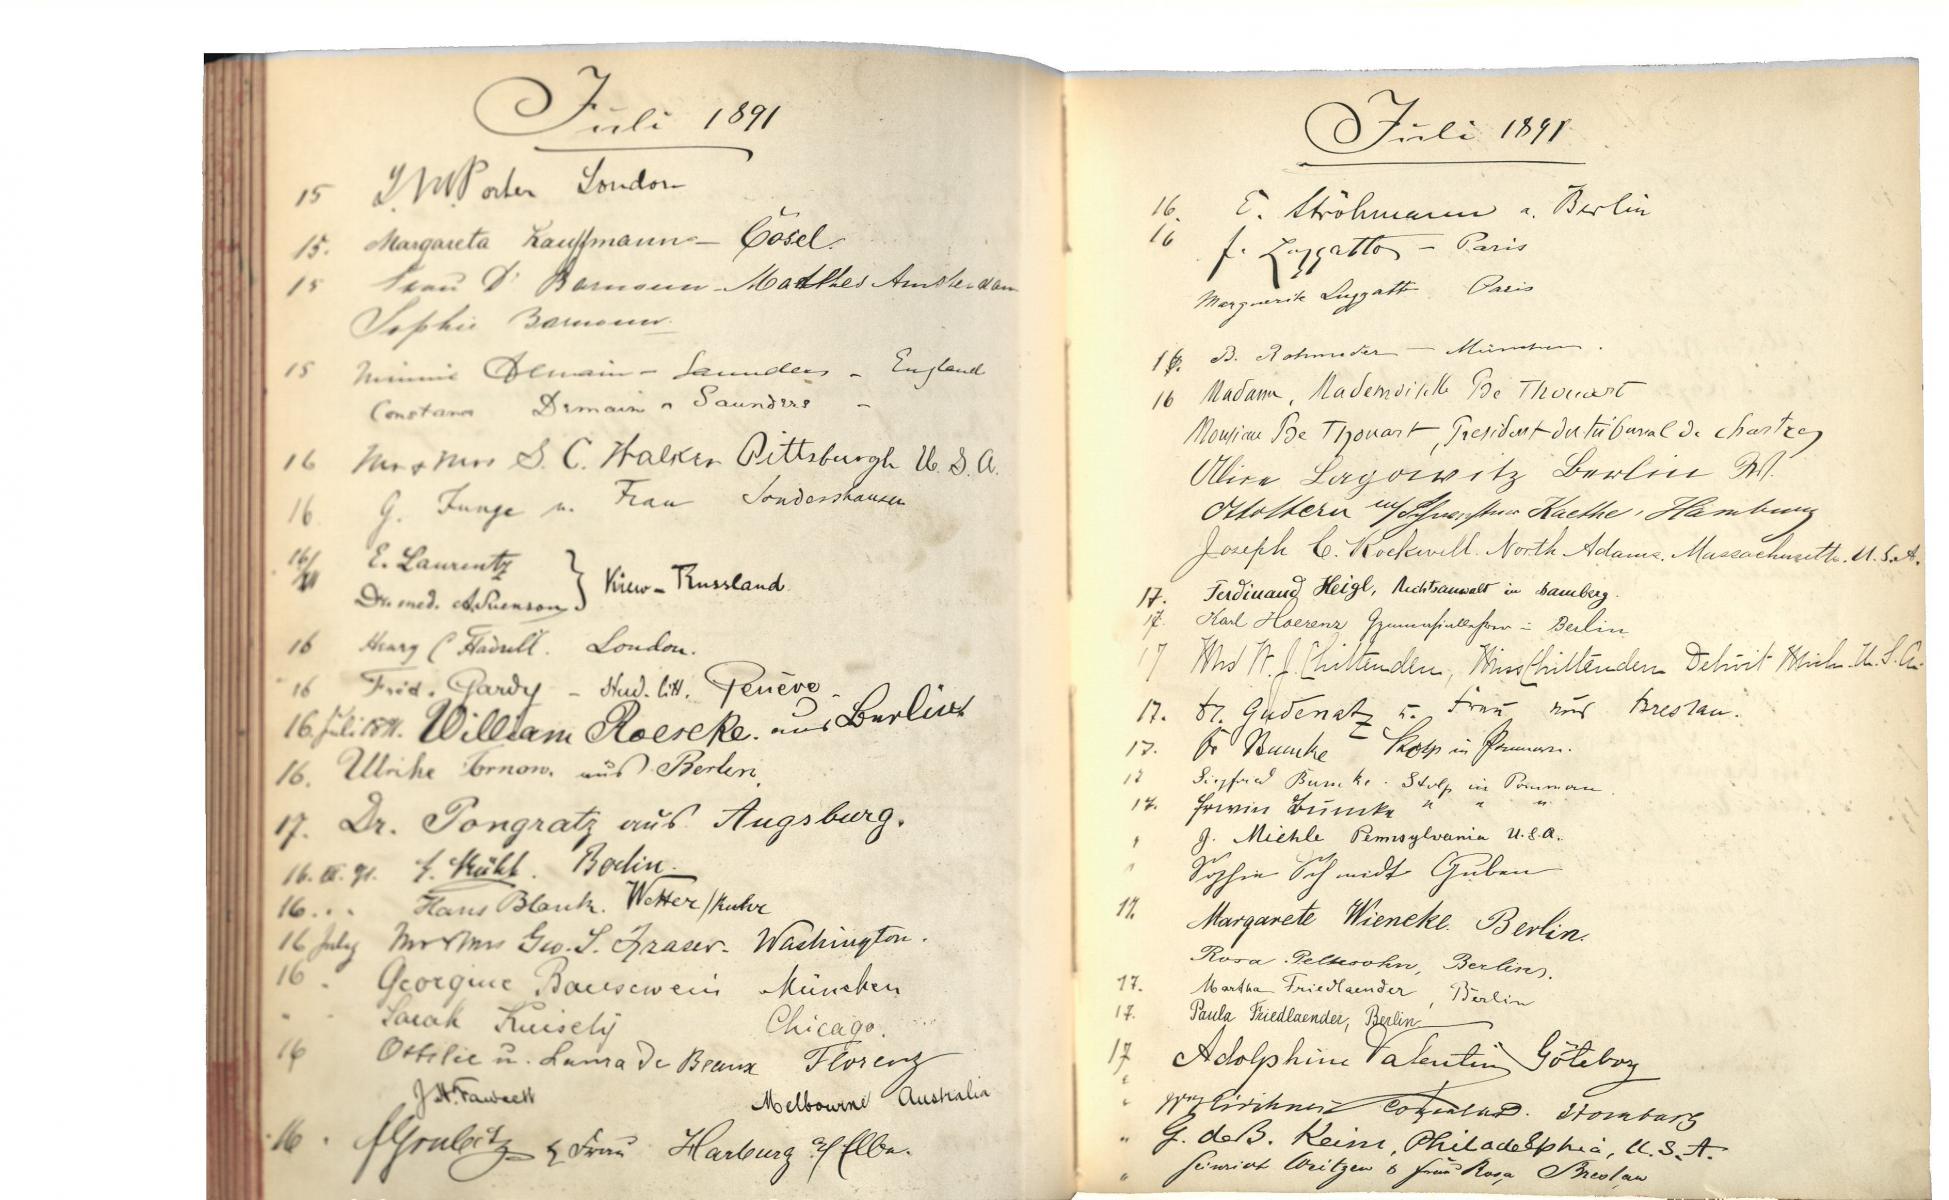 Juli 1891
15 Porter London
15. Margareta Kauffmann – Cösel.
15 Frau Dr Barmann – Matthes Amsterdam
Sophie Barmann
15 Minnie Demain – Saunders – England
Constance Demain – Saunders –
16 Mr & Mrs S. C. Walker Pittsburgh U. S. A.
16 G. Junge u. Frau Sondershausen
16/ E. Laurentz
Dr. med. } Kiew – Russland
16 Henry C London.
16 Fréd. Gardy – stud. litt. Genève.
16. Juli 1891. William Roeseke. aus Berlin
16. Ulrike aus Berlin.
17. Dr. Pongratz aus Augsburg.
16. 91. Berlin.
16. " " Hans Blank. Wetter/Ruhr
16 July Mr & Mrs Geo. S. Fraser – Washington.
16 " Georgine Bausewein München
" " Sarah Knisely Chicago.
16 Ottilie u. Laura De Beaux Florenz
J. H. Fawcett Melbourne Australia
16 " & Frau Harburg a/ Elbe.
Juli 1891
16. E. Ströhmann a. Berlin
16 f. Luzzatto – Paris
Marguerite Luzzatto Paris
B. Rohmeder – München.
16 Madame, Mademoiselle De Thouart
Monsieur De Thouart, Président du tribunal de Chartres
Alice Lagowitz Berlin W.
Kaethe, Hamburg
Joseph C. Rockwell. North Adams. Massachusetts. U. S. A.
17. Ferdinand Heigl, Rechtsanwalt in Bamberg.
17. Karl Hoerenz – Berlin
17 Mrs W. J. Chittenden, Miss Chittenden Detroit Mich. U. S. A.
17. Dr. Gudenatz u. Frau aus Breslau.
17. Dr Bumke Stolp in Pommern.
17 Siegfried Bumke. Stolp in Pommern.
17. Erwin Bumke " " "
" J. Miehle Pennsylvania U. S. A.
" Sophie Schmidt Guben
17. Margarete Wieneke. Berlin.
Rosa Peltesohn, Berlin.
17. Martha Friedlaender, Berlin
17. Paula Friedlaender, Berlin
17 Adolphine Valentin Göteborg
" Hamburg
" G. de B. Keim, Philadelphia, U. S. A.
" Heinrich & Frau Rosa Breslau